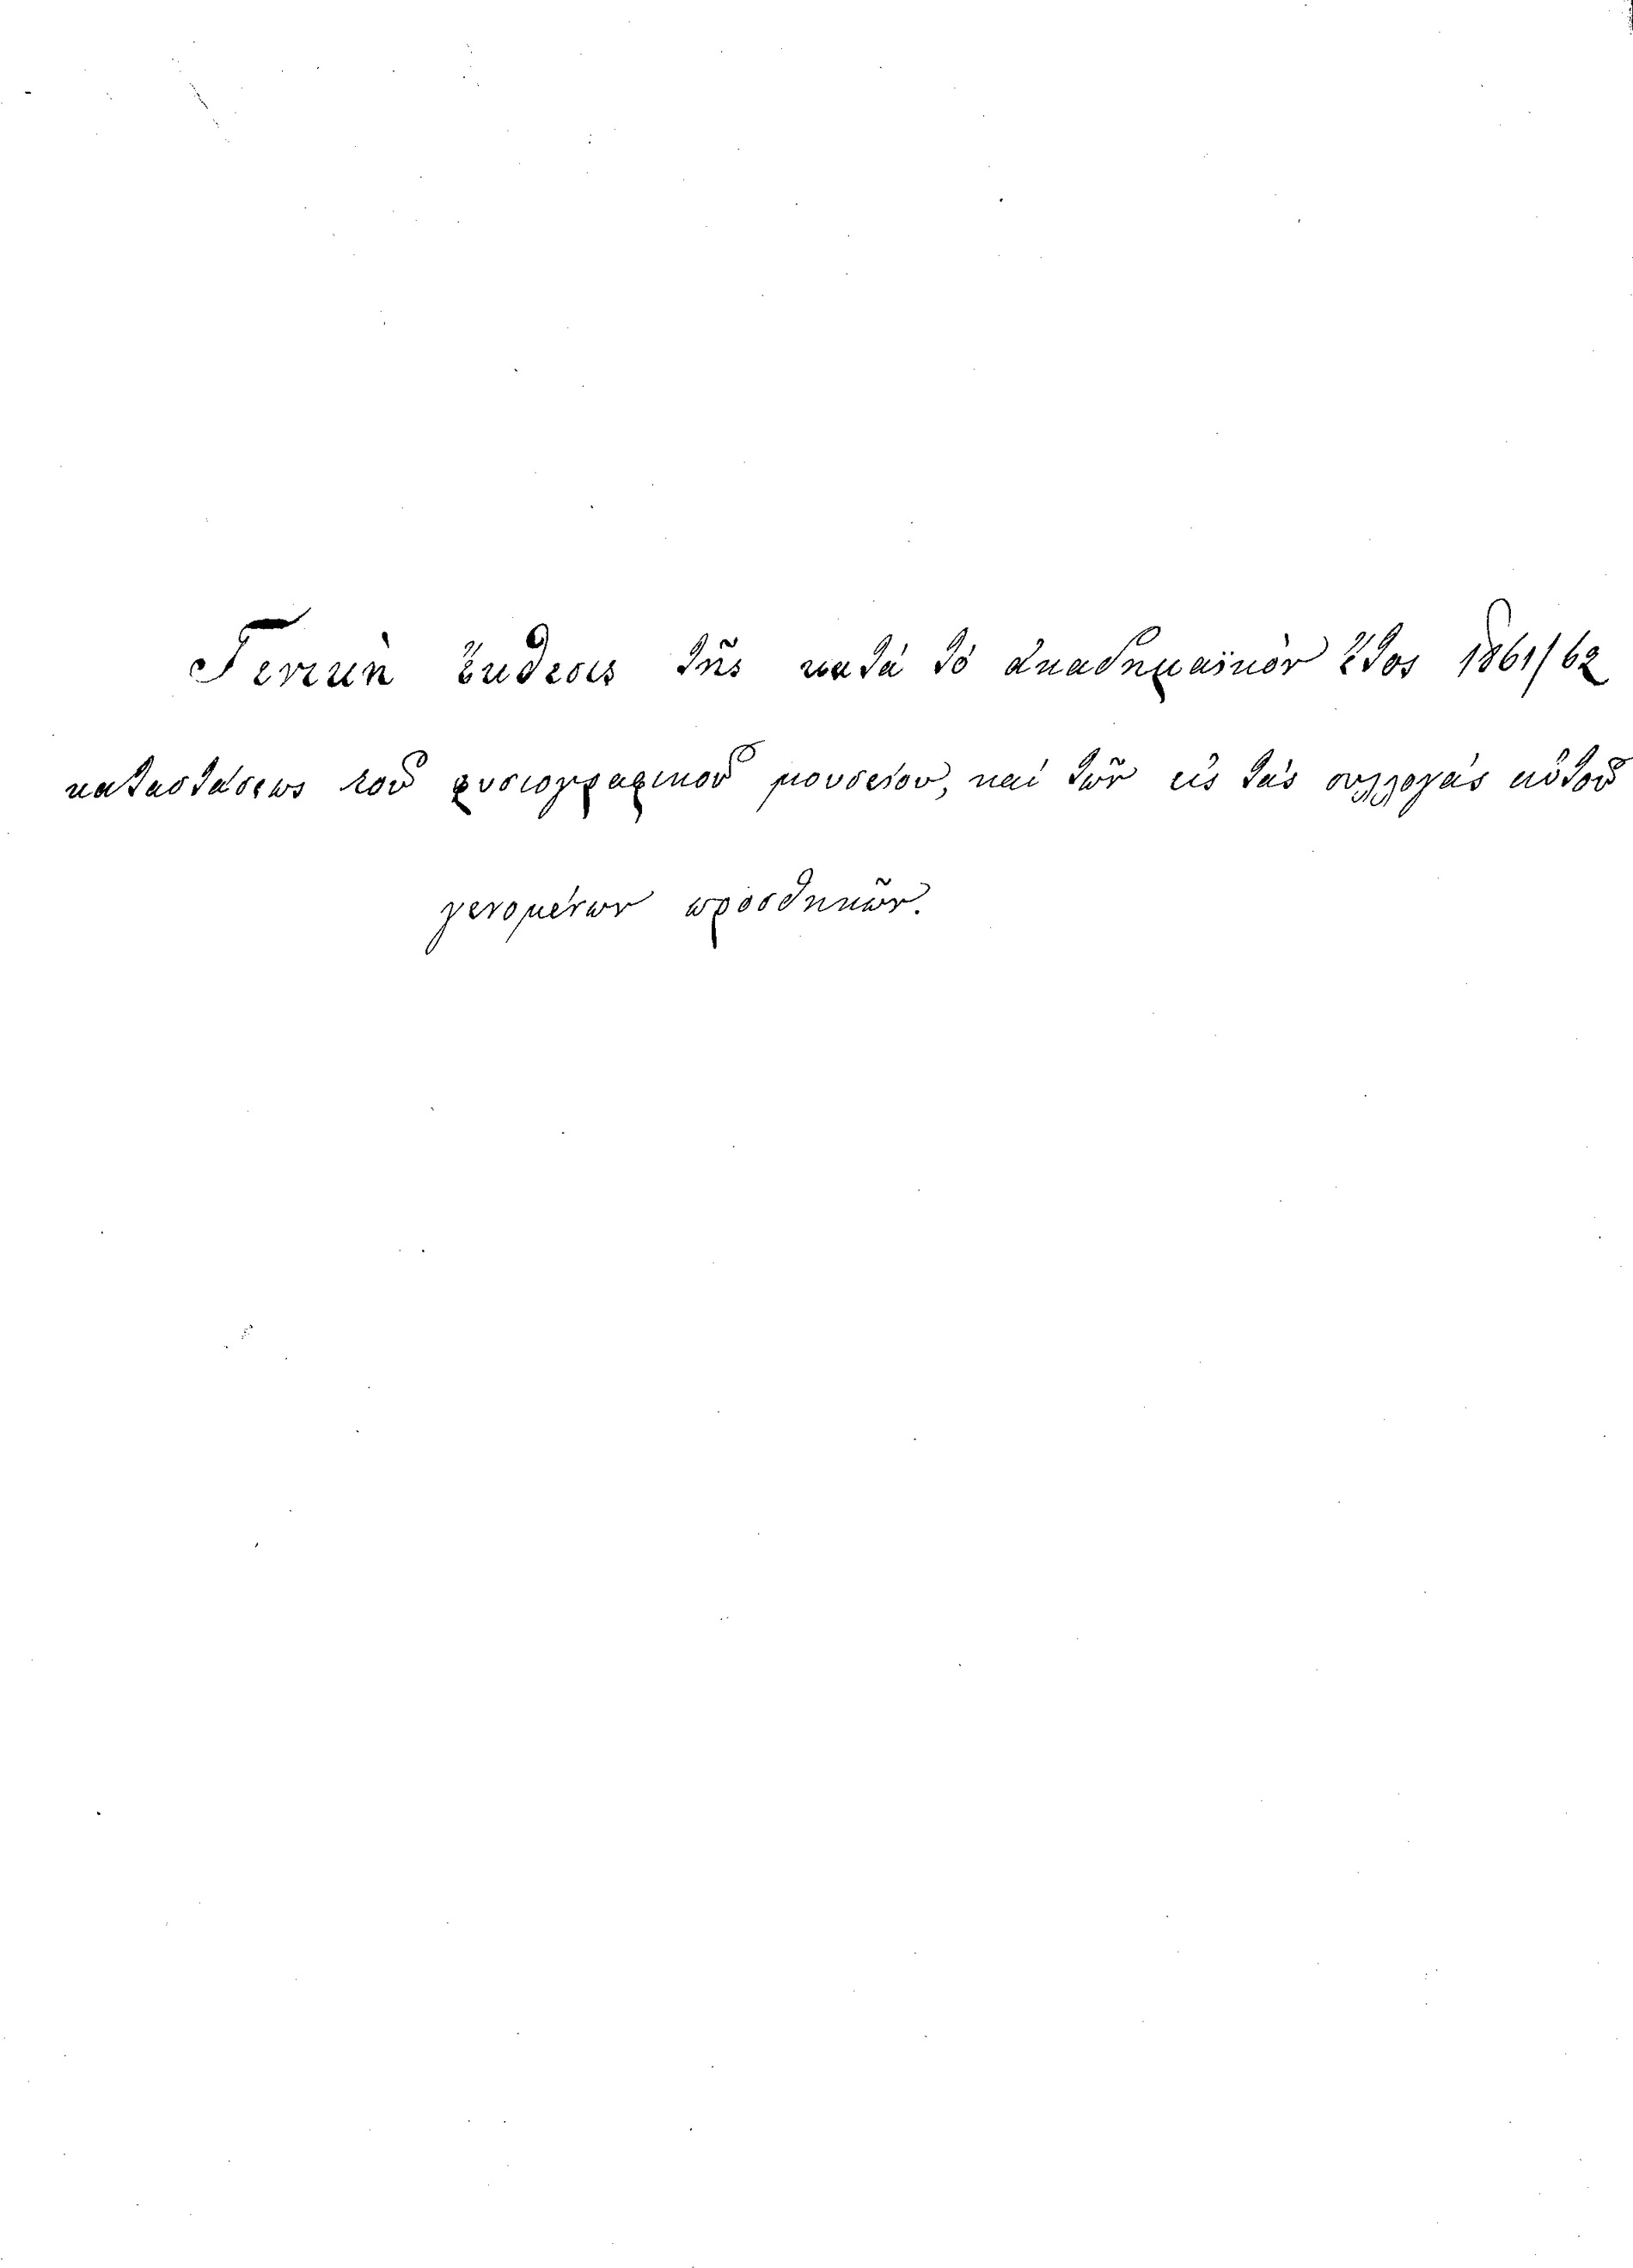 Γενικὴ ἔκθεσις τῆς κατὰ τὸ ἀκαδημαϊκὸν ἔτος 1861/62
καταστάσεως τοῦ φυσιογραφικοῦ μουσείου, καὶ τῶν εἰς τὰς συλλογὰς αὐτοῦ
γενομένων προσθηκῶν.